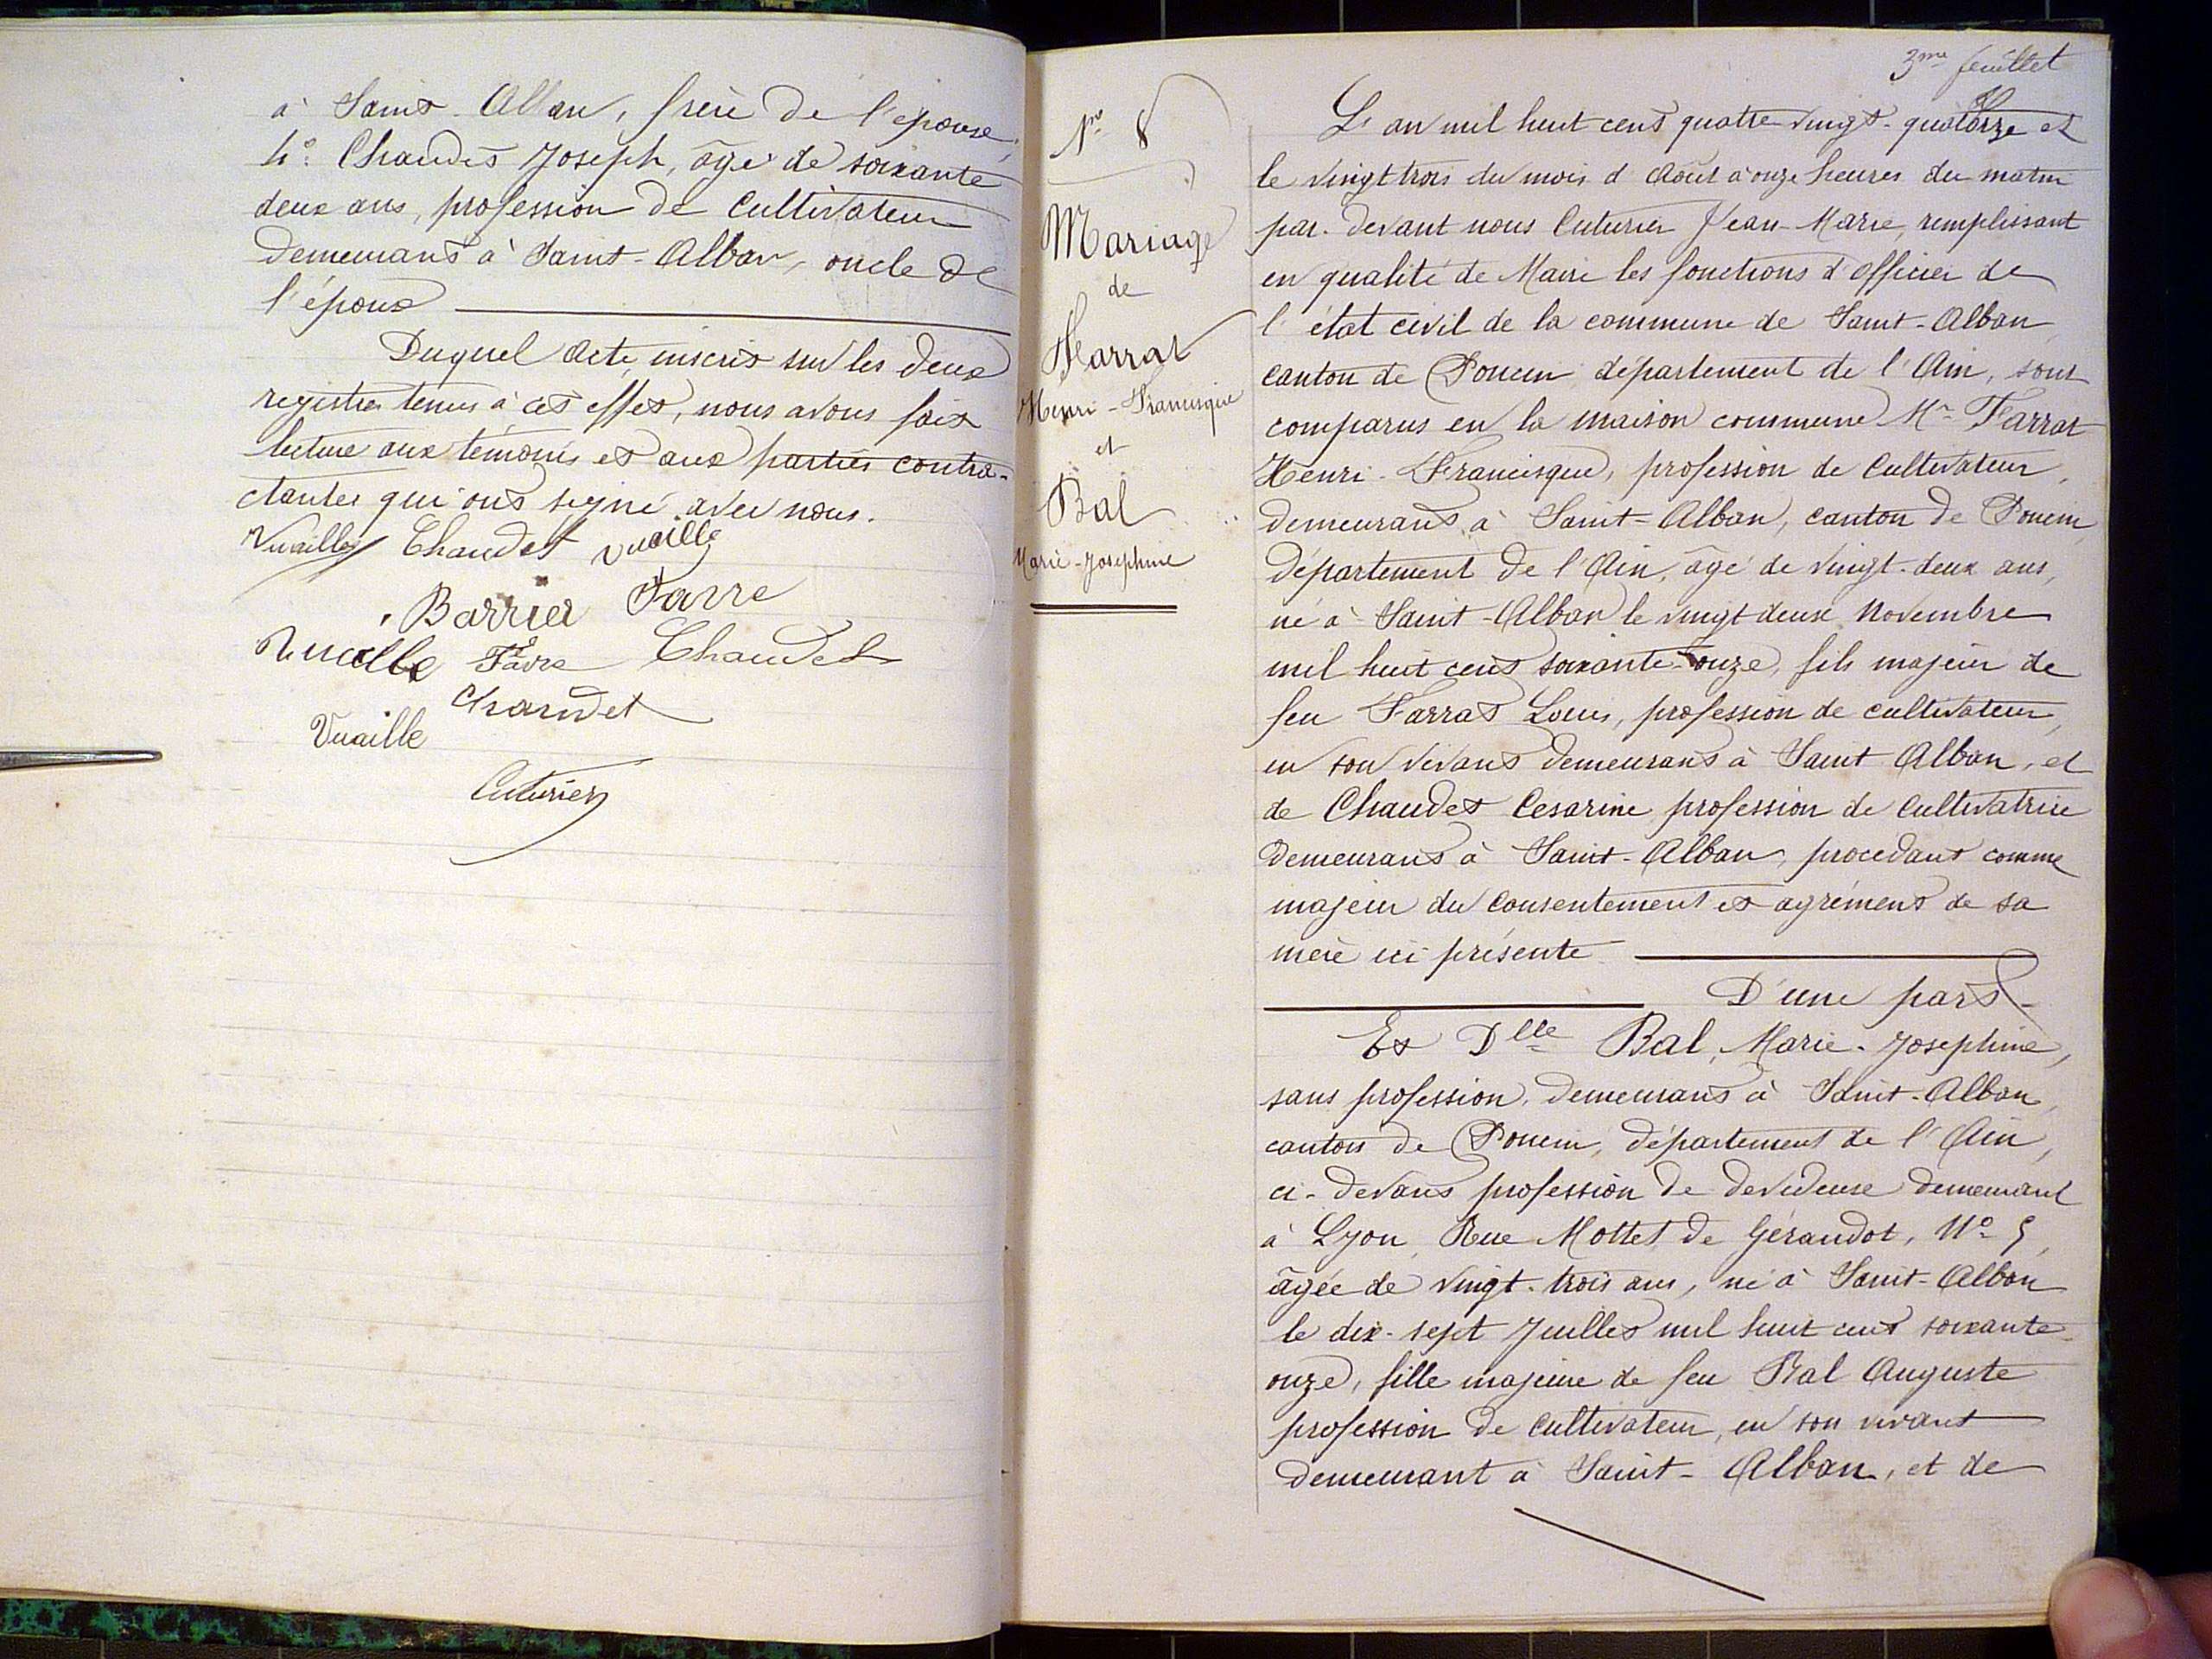 à Saint-Alban, frère de l'épouse,
4° Chaudet Joseph, âgé de soixante
deux ans, profession de Cultivateur
demeurant à Saint-Alban, oncle de
l'époux
Duquel acte, inscrit sur les deux
registres tenus à cet effet, nous avons fait
lecture aux témoins et aux parties contra-
ctantes qui ont signé avec nous.
Vuaille Chaudet Vuaille
Barrier Favre
Vuaille Favre Chaudet
Chaudet
Vuaille
Cuturier
3me feuillet
N° 8
Mariage
de
Farrat
Henri-Francisque
et
Bal
Marie-Josephine
L'an mil huit cent quatre vingt-quatorze et
le vingt trois du mois d'Août à onze heures du matin
par-devant nous Cuturier Jean-Marie, remplissant
en qualité de Maire les fonctions d'officier de
l'état civil de la commune de Saint-Alban,
canton de Poncin département de l'Ain, sont
comparus en la maison commune Mr Farrat
Henri-Francisque, profession de Cultivateur,
demeurant à Saint-Alban, canton de Poncin
département de l'Ain, âgé de vingt-deux ans,
né à Saint-Alban le vingt deux Novembre
mil huit cent soixante-onze, fils majeur de
feu Farrat Louis, profession de cultivateur,
en son vivant demeurant à Saint Alban, et
de Chaudet Cesarine profession de Cultivatrice
demeurant à Saint-Alban, procedant comme
majeur du consentement et agrément de sa
mère ici présente
D'une part
Et Dlle Bal, Marie-Josephine,
sans profession, demeurant à Saint-Alban
canton de Poncin, département de l'Ain,
ci-devant profession de devideuse demeurant
à Lyon, Rue Mottet de Gérandot, N° 5,
âgée de vingt-trois ans, né à Saint-Alban
le dix-sept Juillet mil huit cent soixante-
onze, fille majeure de feu Bal Auguste
profession de cultivateur, en son vivant
demeurant à Saint-Alban, et de